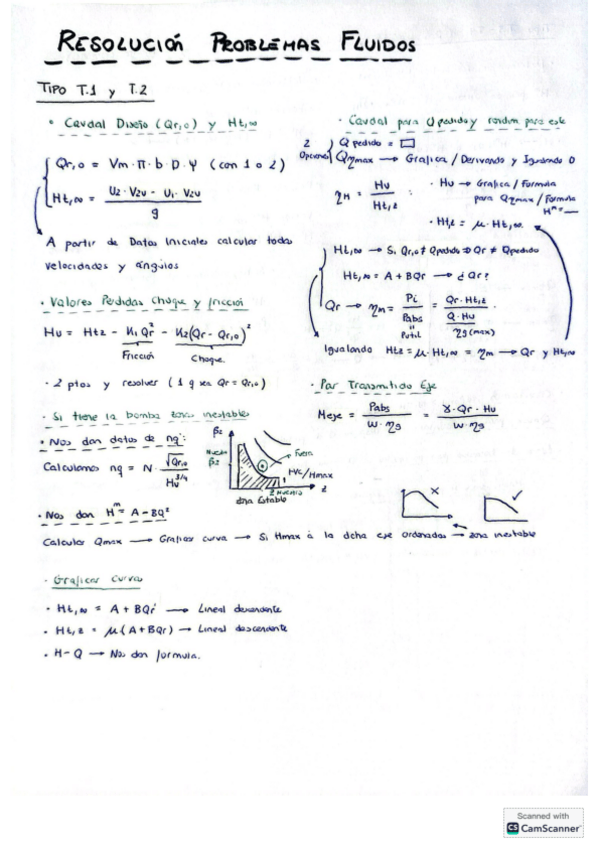 RESOLUCIÓN PROBLEMAS FLUIDOS
TIPO T.1 y T.2
• Caudal Diseño (Qr,0) y Ht,∞
Qr,0 = Vm · π · b · D · Ψ (con 1 o 2)
Ht,∞ = U2 · V2u - U1 · V2u / g
A partir de Datos Iniciales calcular todas
velocidades y ángulos
• Valores Perdidas Choque y fricción
Hu = Htz - K1 Qr² - K2(Qr - Qr,0)²
Fricción
Choque
• 2 ptos y resolver (1 q sea Qr = Qr,0)
• Si tiene la bomba zona inestable
• Nos dan datos de nq:
Calculamos nq = N · √Qr,0 / Hu^3/4
β2
Nuestro β2
Fuera
Hvc/Hmax
z nuestro
z
zona Estable
• Nos dan H^m = A - BQ²
Calcular Qmax → Graficar curva → Si Hmax a la dcha eje ordenadas → zona inestable
• Graficar Curvas
• Ht,∞ = A + BQr → Lineal descendente
• Ht,z = μ(A + BQr) → Lineal descendente
• H-Q → Nos dan formula.
• Caudal para Q pedido y rendim para este
2 Opciones
Q pedido = □
Qηmax → Grafica / Derivando y Igualando 0
ηH = Hu / Ht,z :
• Hu → Grafica / Formula
para Qηmax / Formula
H^m = __
• Ht,z = μ · Ht,∞.
Ht,∞ → Si Qr,0 ≠ Qpedido ⇒ Qr ≠ Qpedido
Ht,∞ = A + BQr → ¿Qr?
Qr → ηm = Pi / Pabs = Qr · Ht,z / Q · Hu / ηg(max)
Putil
Igualando Htz = μ · Ht,∞ = ηm → Qr y Ht,∞
• Par Transmitido Eje
Meje = Pabs / W · ηg = γ · Qr · Hu / W · ηg
Scanned with
CS CamScanner